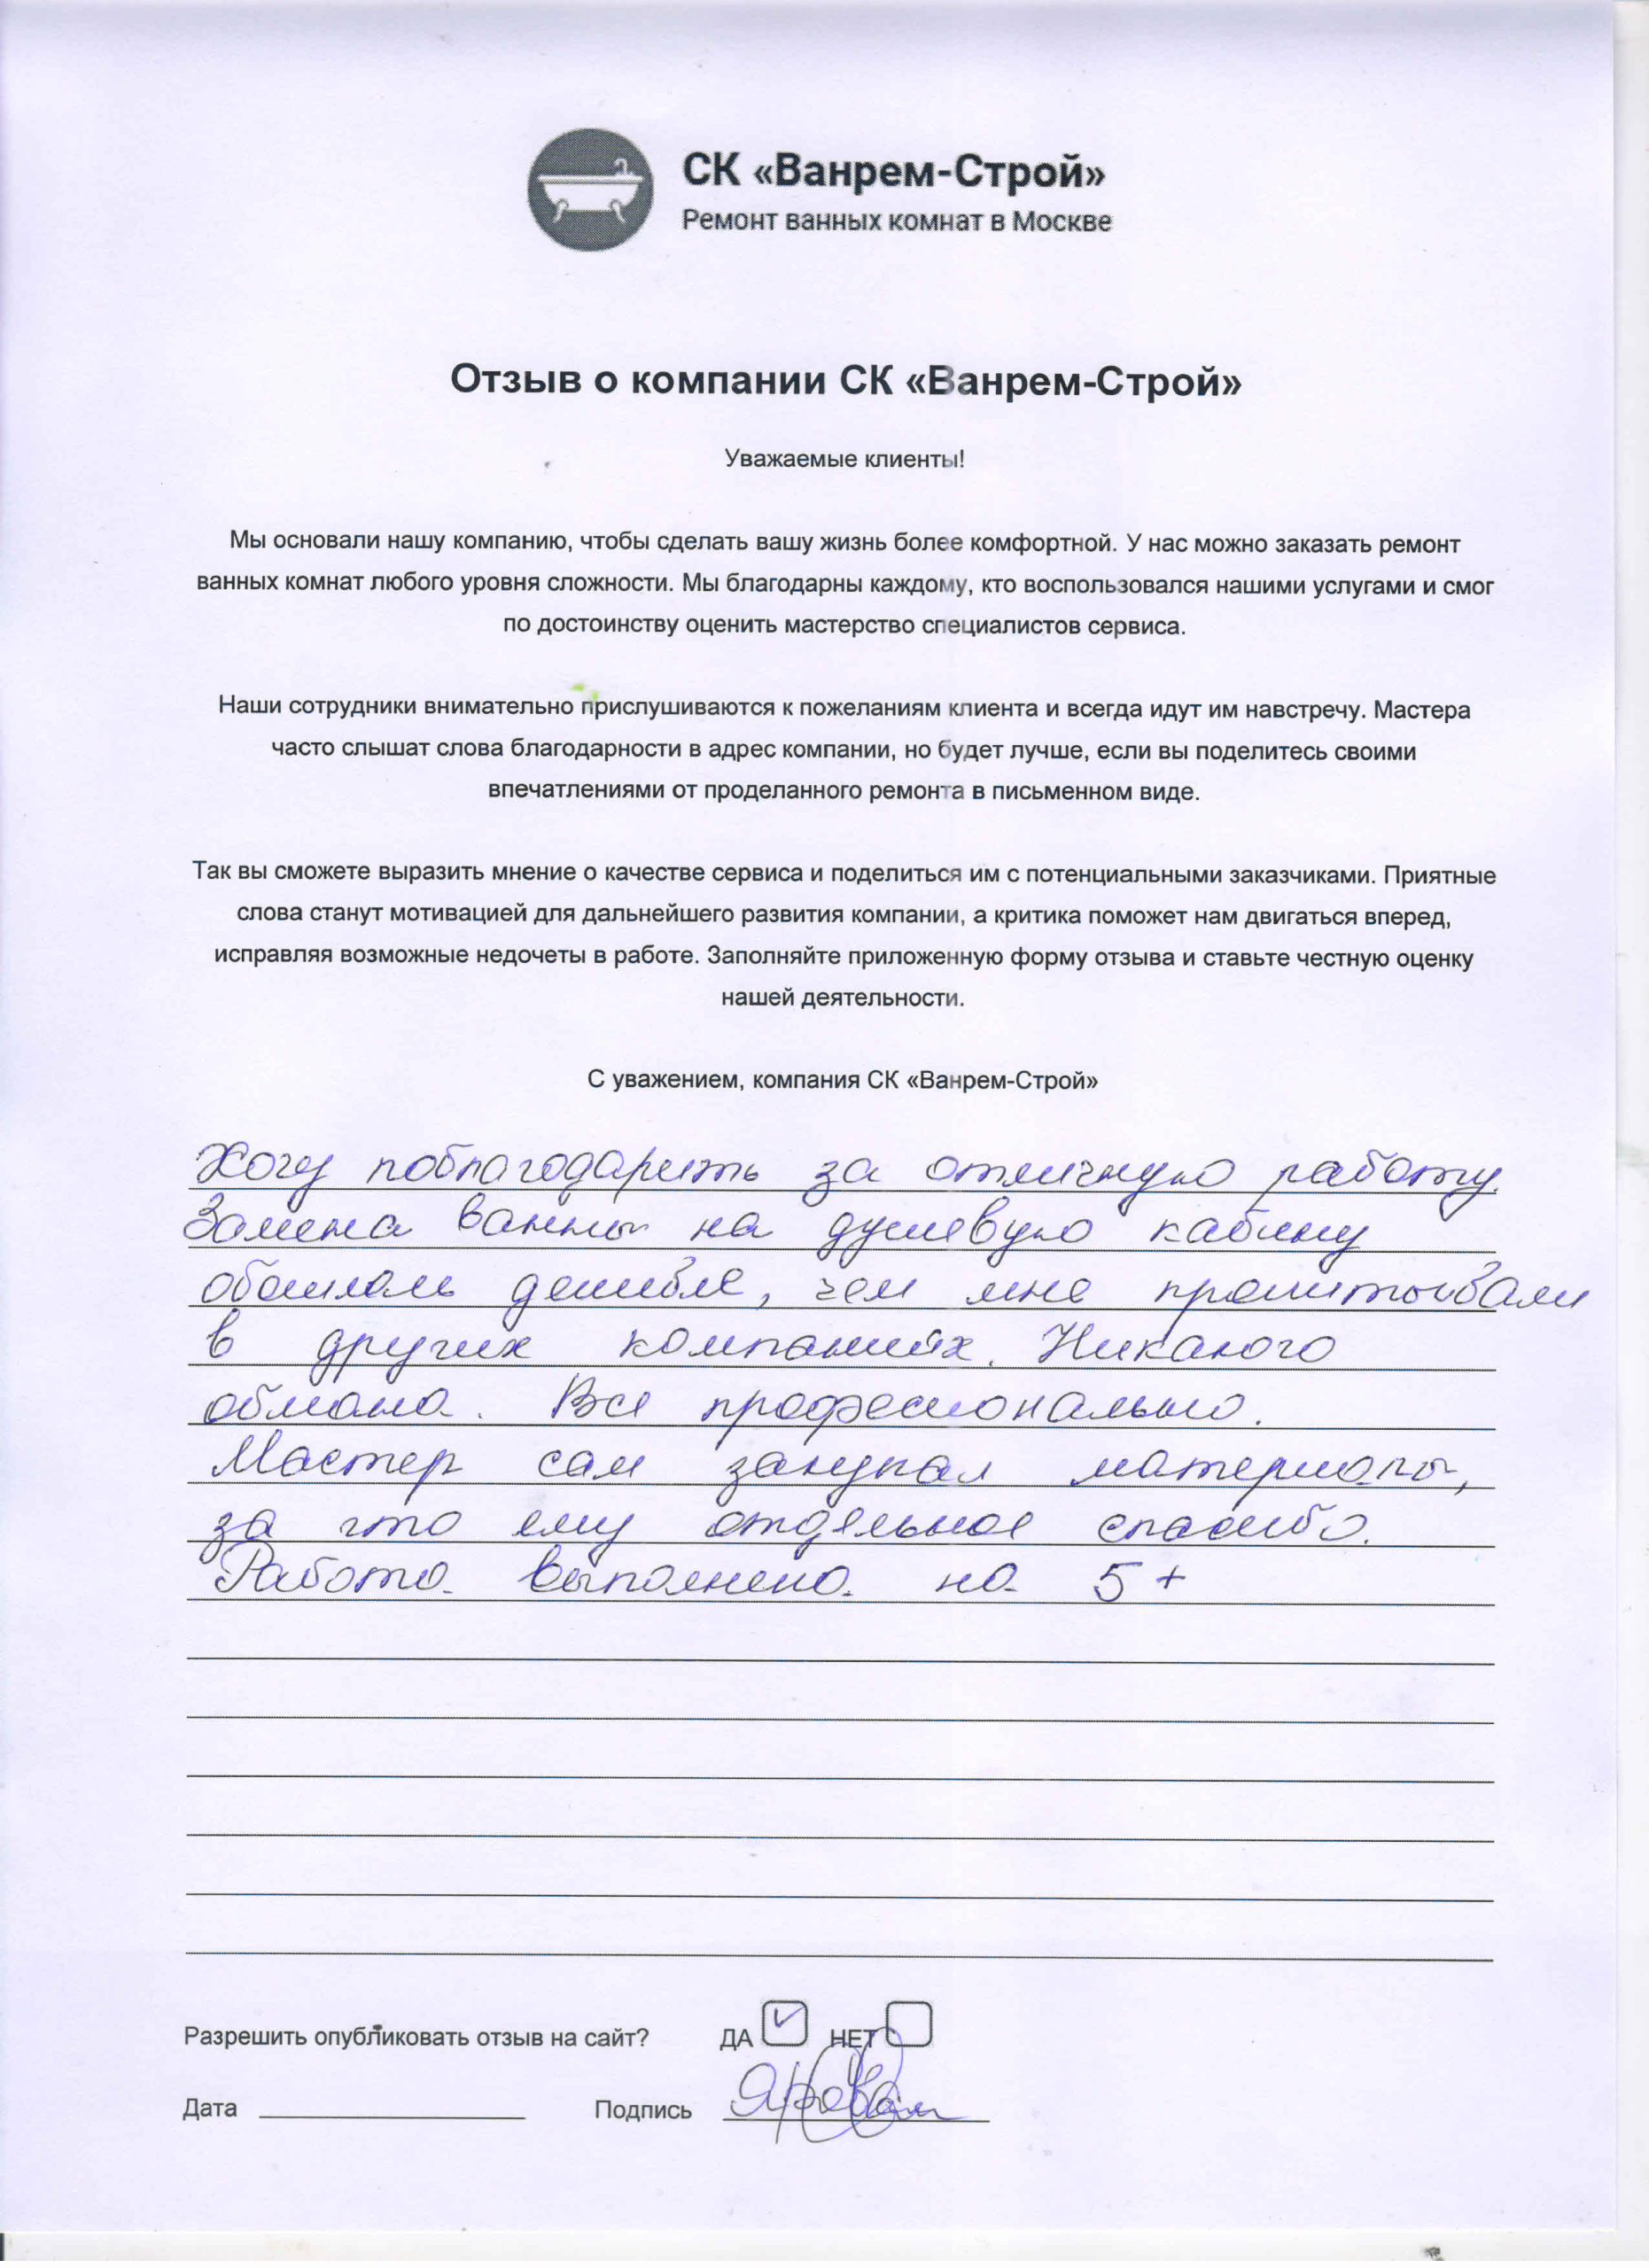 СК «Ванрем-Строй»
Ремонт ванных комнат в Москве
Отзыв о компании СК «Ванрем-Строй»
Уважаемые клиенты!
Мы основали нашу компанию, чтобы сделать вашу жизнь более комфортной. У нас можно заказать ремонт
ванных комнат любого уровня сложности. Мы благодарны каждому, кто воспользовался нашими услугами и смог
по достоинству оценить мастерство специалистов сервиса.
Наши сотрудники внимательно прислушиваются к пожеланиям клиента и всегда идут им навстречу. Мастера
часто слышат слова благодарности в адрес компании, но будет лучше, если вы поделитесь своими
впечатлениями от проделанного ремонта в письменном виде.
Так вы сможете выразить мнение о качестве сервиса и поделиться им с потенциальными заказчиками. Приятные
слова станут мотивацией для дальнейшего развития компании, а критика поможет нам двигаться вперед,
исправляя возможные недочеты в работе. Заполняйте приложенную форму отзыва и ставьте честную оценку
нашей деятельности.
С уважением, компания СК «Ванрем-Строй»
Хочу поблагодарить за отличную работу.
Замена ванны на душевую кабину
обошлась дешевле, чем мне
в других компаниях. Никакого
обмана. Все профессионально.
Мастер сам закупал материалы,
за что ему отдельное спасибо.
Работа выполнена на 5+
Разрешить опубликовать отзыв на сайт? ДА НЕТ
Дата Подпись